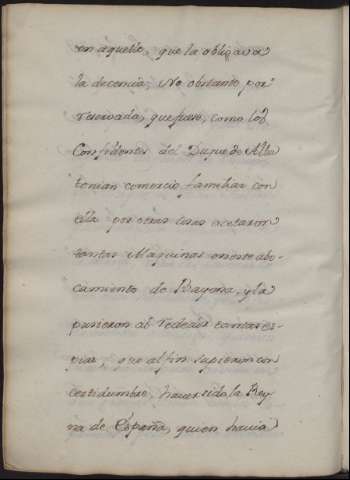 en aquello, que la obligava
la decencia; No obstante por
reservada, que fuese, como los
Confidentes del Duque de Alba
tenian comercio familiar con
ella por otras cosas acetaron
tantas Maquinas en este abo-
camiento de Bayona, y la
pusieron al rededor tantas es-
pias, que al fin supieron con
certidumbre, haver sido la Rey-
na de España, quien havia